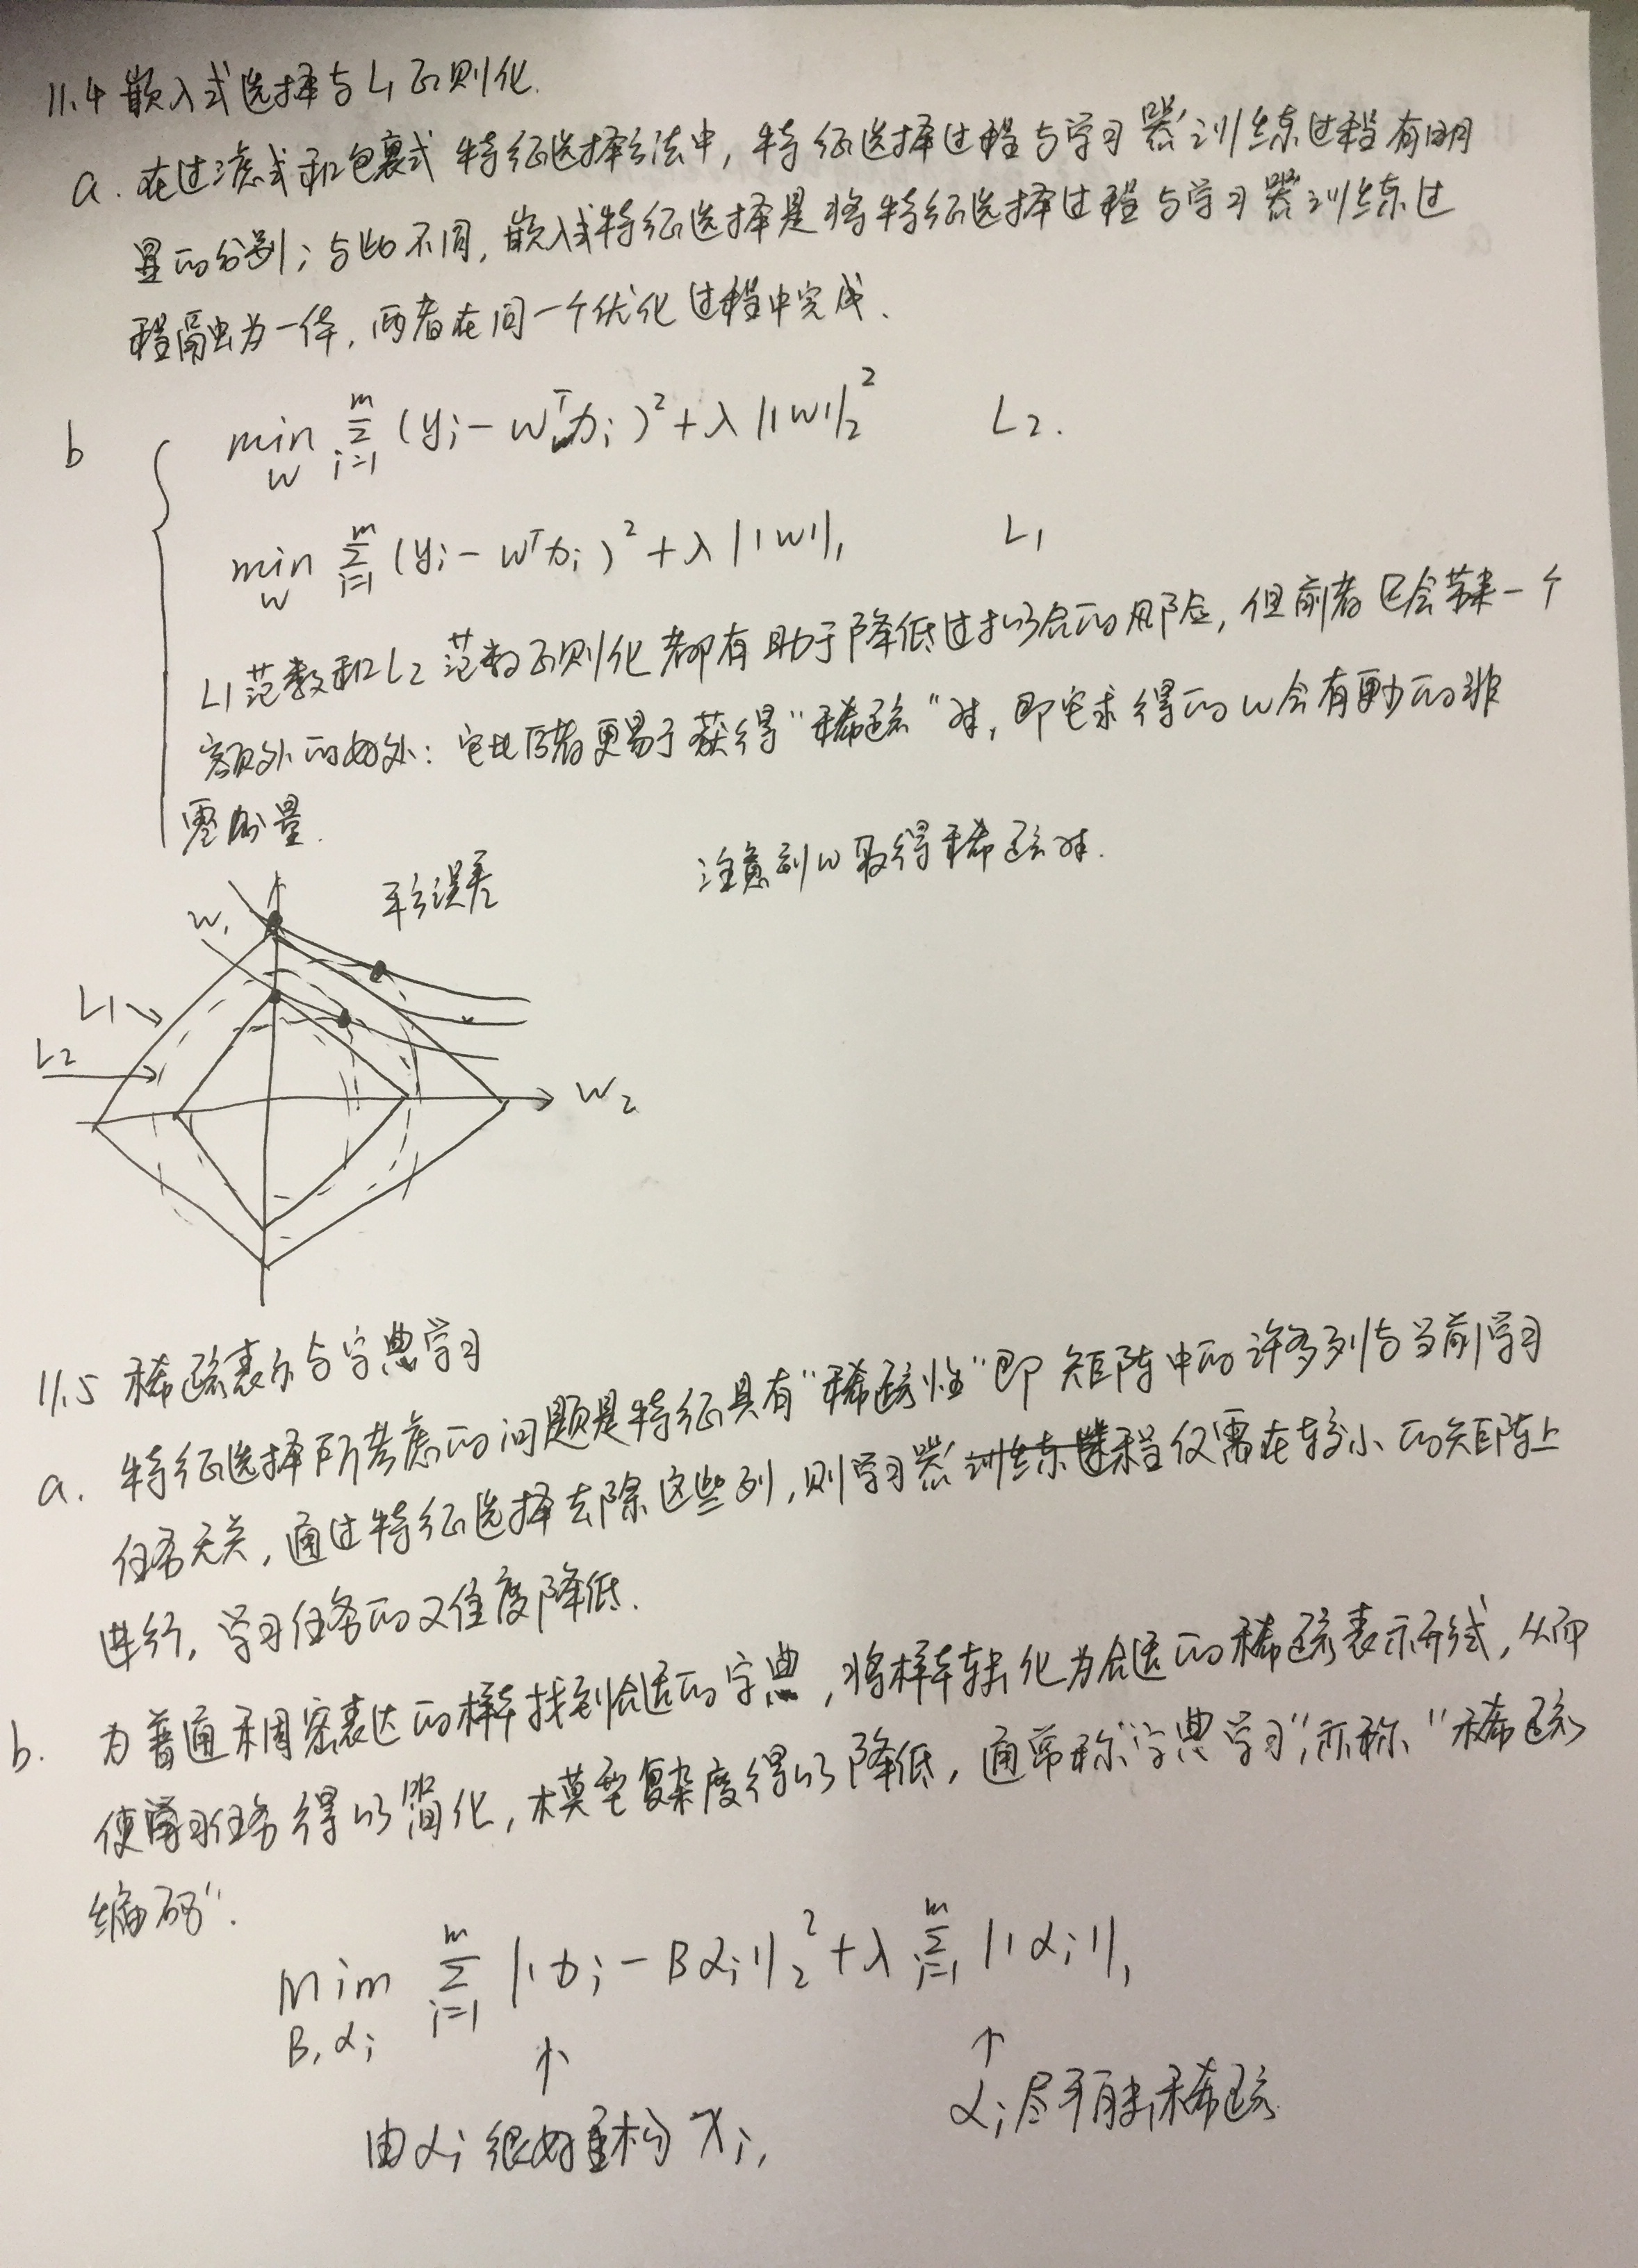 11.4 嵌入式选择与L1正则化.
a. 在过滤式和包裹式特征选择方法中, 特征选择过程与学习器训练过程有明
显的分别; 与此不同, 嵌入式特征选择是将特征选择过程与学习器训练过
程融为一体, 两者在同一个优化过程中完成.
b min_w Σ_{i=1}^m (y_i - w^T x_i)^2 + λ||w||_2^2 L2.
min_w Σ_{i=1}^m (y_i - w^T x_i)^2 + λ||w||_1 L1
L1范数和L2范数正则化都有助于降低过拟合的风险, 但前者还会带来一个
额外的好处: 它比后者更易于获得"稀疏"解, 即它求得的w会有更少的非
零分量.
注意到w取得稀疏解.
平方误差
w1
L1
L2
w2
11.5 稀疏表示与字典学习
a. 特征选择所考虑的问题是特征具有"稀疏性" 即矩阵中的许多列与当前学习
任务无关, 通过特征选择去除这些列, 则学习器训练过程仅需在较小的矩阵上
进行, 学习任务的难度降低.
b. 为普通稠密表达的样本找到合适的字典, 将样本转化为合适的稀疏表示形式, 从而
使学习任务得以简化, 模型复杂度得以降低, 通常称"字典学习", 亦称"稀疏
编码".
Min_{B, α_i} Σ_{i=1}^m ||x_i - Bα_i||_2^2 + λ Σ_{i=1}^m ||α_i||_1
↑ ↑
由α_i很好重构x_i, α_i尽可能稀疏